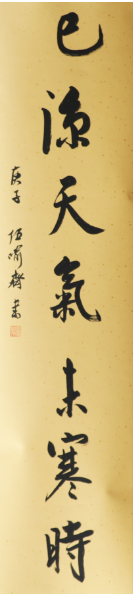 已涼天氣未寒時
庚子 伍嘯齋書